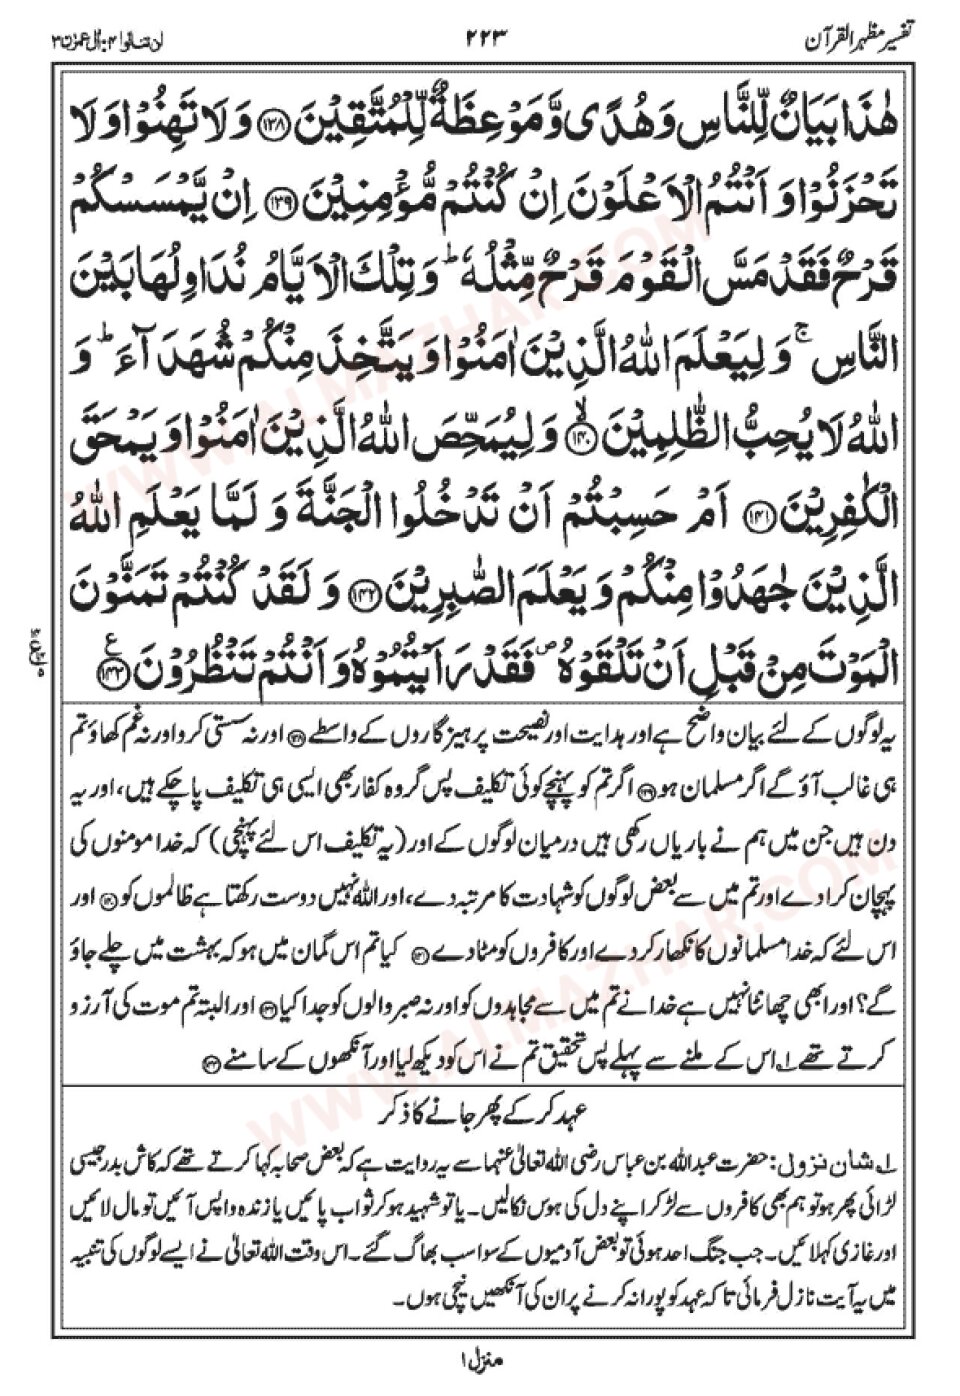 تفسیر مظہر القرآن ۲۲۳ لن تنالوا ۴: اٰل عمرٰن ۳
هٰذَا بَيَانٌ لِّلنَّاسِ وَهُدًى وَّمَوْعِظَةٌ لِّلْمُتَّقِيْنَ ۝۱۳۸ وَلَا تَهِنُوْا وَلَا
تَحْزَنُوْا وَ اَنْتُمُ الْاَعْلَوْنَ اِنْ كُنْتُمْ مُّؤْمِنِيْنَ ۝۱۳۹ اِنْ يَّمْسَسْكُمْ
قَرْحٌ فَقَدْ مَسَّ الْقَوْمَ قَرْحٌ مِّثْلُهٗ ؕ وَ تِلْكَ الْاَيَّامُ نُدَاوِلُهَا بَيْنَ
النَّاسِ ۚ وَ لِيَعْلَمَ اللهُ الَّذِيْنَ اٰمَنُوْا وَ يَتَّخِذَ مِنْكُمْ شُهَدَآءَ ؕ وَ
اللهُ لَا يُحِبُّ الظّٰلِمِيْنَ ۝۱۴۰ۙ وَ لِيُمَحِّصَ اللهُ الَّذِيْنَ اٰمَنُوْا وَ يَمْحَقَ
الْكٰفِرِيْنَ ۝۱۴۱ اَمْ حَسِبْتُمْ اَنْ تَدْخُلُوا الْجَنَّةَ وَ لَمَّا يَعْلَمِ اللهُ
الَّذِيْنَ جٰهَدُوْا مِنْكُمْ وَ يَعْلَمَ الصّٰبِرِيْنَ ۝۱۴۲ وَ لَقَدْ كُنْتُمْ تَمَنَّوْنَ
الْمَوْتَ مِنْ قَبْلِ اَنْ تَلْقَوْهُ ۪ فَقَدْ رَاَيْتُمُوْهُ وَ اَنْتُمْ تَنْظُرُوْنَ ۝۱۴۳ ع
یہ لوگوں کے لئے بیان واضح ہے اور ہدایت اور نصیحت پرہیزگاروں کے واسطے ۱۳۸ اور نہ سستی کرو اور نہ غم کھاؤ تم
ہی غالب آؤ گے اگر مسلمان ہو ۱۳۹ اگر تم کو پہنچے کوئی تکلیف پس گروہ کفار بھی ایسی ہی تکلیف پا چکے ہیں، اور یہ
دن ہیں جن میں ہم نے باریاں رکھی ہیں درمیان لوگوں کے اور (یہ تکلیف اس لئے پہنچی) کہ خدا مومنوں کی
پہچان کرا دے اور تم میں سے بعض لوگوں کو شہادت کا مرتبہ دے، اور اللہ نہیں دوست رکھتا ہے ظالموں کو ۱۴۰ اور
اس لئے کہ خدا مسلمانوں کا نکھار کر دے اور کافروں کو مٹا دے ۱۴۱ کیا تم اس گمان میں ہو کہ بہشت میں چلے جاؤ
گے؟ اور ابھی چھانٹا نہیں ہے خدا نے تم میں سے مجاہدوں کو اور نہ صبر والوں کو جدا کیا ۱۴۲ اور البتہ تم موت کی آرزو
کرتے تھے ۱ اس کے ملنے سے پہلے پس تحقیق تم نے اس کو دیکھ لیا اور آنکھوں کے سامنے ۱۴۳
عہد کر کے پھر جانے کا ذکر
۱ شان نزول: حضرت عبد اللہ بن عباس رضی اللہ تعالیٰ عنہما سے یہ روایت ہے کہ بعض صحابہ کہا کرتے تھے کہ کاش بدر جیسی
لڑائی پھر ہو تو ہم بھی کافروں سے لڑ کر اپنے دل کی ہوس نکالیں۔ یا تو شہید ہو کر ثواب پائیں یا زندہ واپس آئیں تو مال لائیں
اور غازی کہلائیں۔ جب جنگ احد ہوئی تو بعض آدمیوں کے سوا سب بھاگ گئے۔ اس وقت اللہ تعالیٰ نے ایسے لوگوں کی تنبیہ
میں یہ آیت نازل فرمائی تا کہ عہد کو پورا نہ کرنے پر ان کی آنکھیں نیچی ہوں۔
منزل ۱
WWW.ALMAZHAR.COM
WWW.ALMAZHAR.COM